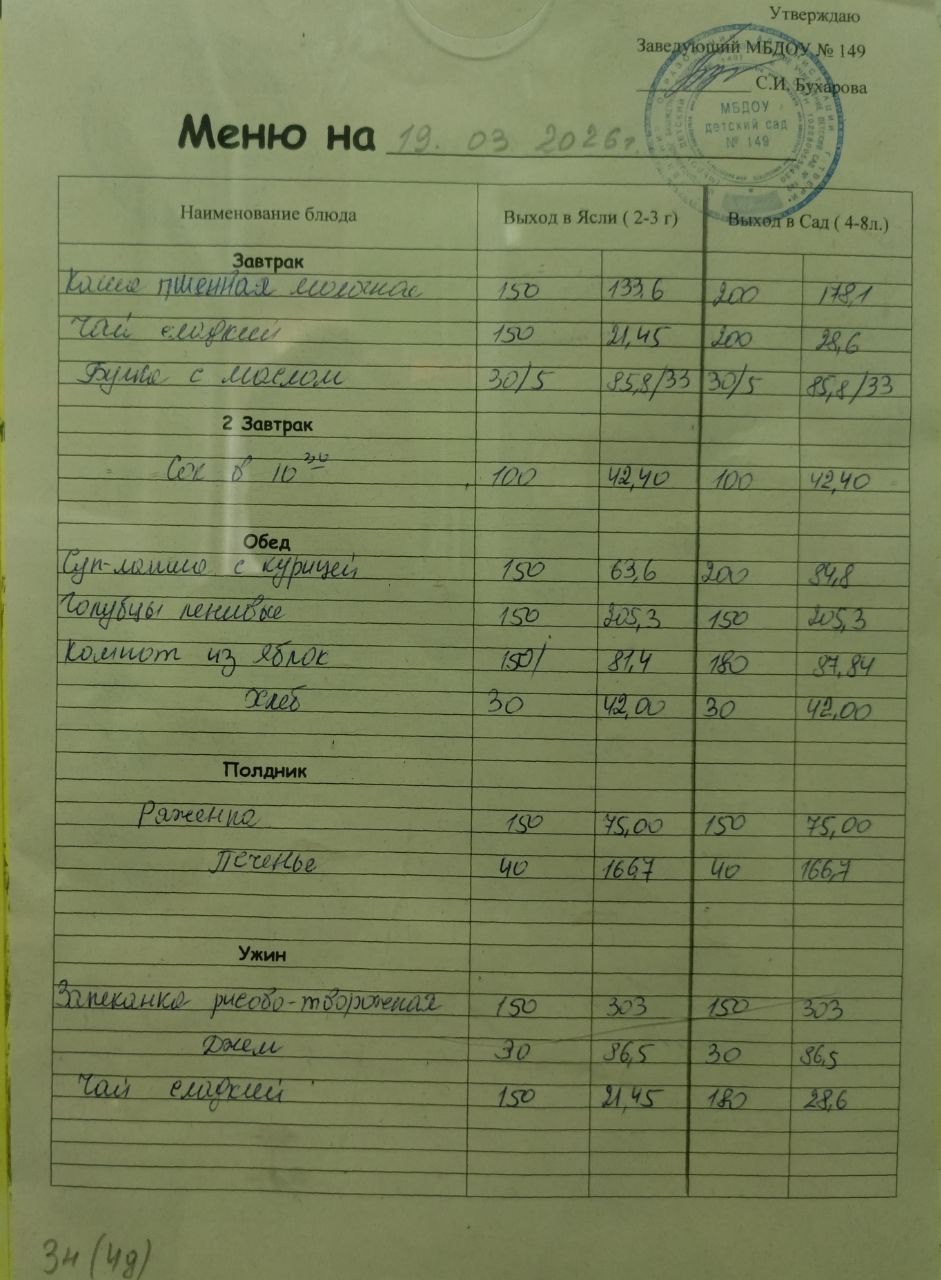 Утверждаю
Заведующий МБДОУ № 149
С.И. Бухарова
МБДОУ
детский сад
№ 149
Меню на 19. 03 2026г.
Наименование блюда Выход в Ясли ( 2-3 г) Выход в Сад ( 4-8л.)
Завтрак
Каша пшенная молочная 150 133,6 200 178,1
Чай сладкий 150 21,45 200 28,6
Булка с маслом 30/5 85,8/33 30/5 85,8/33
2 Завтрак
Сок в 10 30 100 42,40 100 42,40
Обед
Суп-лапша с курицей 150 63,6 200 84,8
Голубцы ленивые 150 205,3 150 205,3
Компот из яблок 150/ 81,4 180 97,84
Хлеб 30 42,00 30 42,00
Полдник
Ряженка 150 75,00 150 75,00
Печенье 40 166,7 40 166,7
Ужин
Запеканка рисово-творожная 150 303 150 303
Джем 30 86,5 30 86,5
Чай сладкий 150 21,45 180 28,6
3н (4д)